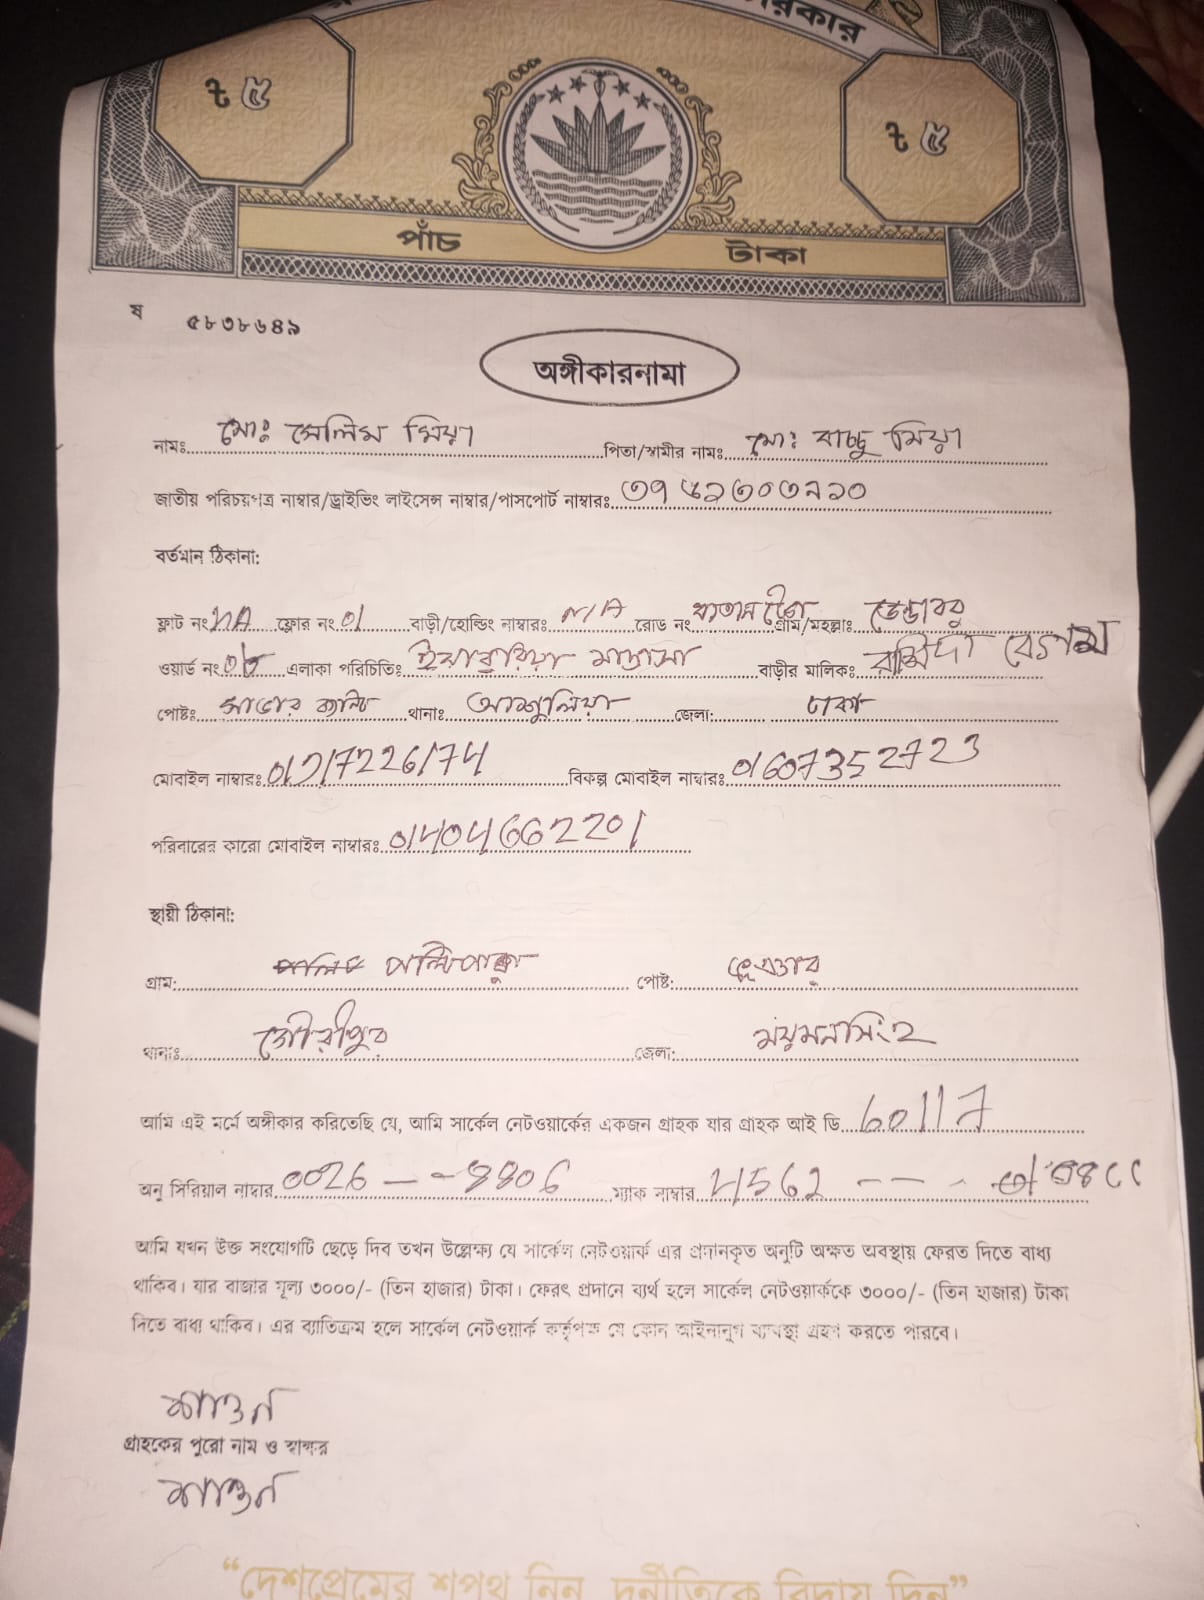 রকার
৳ ৫ ৳ ৫
পাঁচ টাকা
ষ ৫৮৩৮৬৪৯
অঙ্গীকারনামা
নামঃ মোঃ সেলিম মিয়া পিতা/স্বামীর নামঃ মোঃ বাচ্চু মিয়া
জাতীয় পরিচয়পত্র নাম্বার/ড্রাইভিং লাইসেন্স নাম্বার/পাসপোর্ট নাম্বারঃ
বর্তমান ঠিকানা:
ফ্লাট নং NA ফ্লোর নং 01 বাড়ী/হোল্ডিং নাম্বারঃ N/A রোড নং গ্রাম/মহল্লাঃ ডেন্ডাবর
ওয়ার্ড নং এলাকা পরিচিতিঃ মাদ্রাসা বাড়ীর মালিকঃ বেগম
পোষ্টঃ সাভার ক্যান্ট থানাঃ আশুলিয়া জেলা: ঢাকা
মোবাইল নাম্বারঃ বিকল্প মোবাইল নাম্বারঃ 01607352723
পরিবারের কারো মোবাইল নাম্বারঃ 01404662201
স্থায়ী ঠিকানা:
গ্রাম: পোষ্ট:
থানাঃ গৌরীপুর জেলা: ময়মনসিংহ
আমি এই মর্মে অঙ্গীকার করিতেছি যে, আমি সার্কেল নেটওয়ার্কের একজন গ্রাহক যার গ্রাহক আই ডি 60117
অনু সিরিয়াল নাম্বার ম্যাক নাম্বার
আমি যখন উক্ত সংযোগটি ছেড়ে দিব তখন উল্লেক্ষ্য যে সার্কেল নেটওয়ার্ক এর প্রদানকৃত অনুটি অক্ষত অবস্থায় ফেরত দিতে বাধ্য
থাকিব। যার বাজার মূল্য ৩০০০/- (তিন হাজার) টাকা। ফেরৎ প্রদানে ব্যর্থ হলে সার্কেল নেটওয়ার্ককে ৩০০০/- (তিন হাজার) টাকা
দিতে বাধ্য থাকিব। এর ব্যাতিক্রম হলে সার্কেল নেটওয়ার্ক কর্তৃপক্ষ যে কোন আইনানুগ ব্যবস্থা গ্রহণ করতে পারবে।
গ্রাহকের পুরো নাম ও স্বাক্ষর
“দেশপ্রেমের শপথ নিন, দুর্নীতিকে বিদায় দিন”